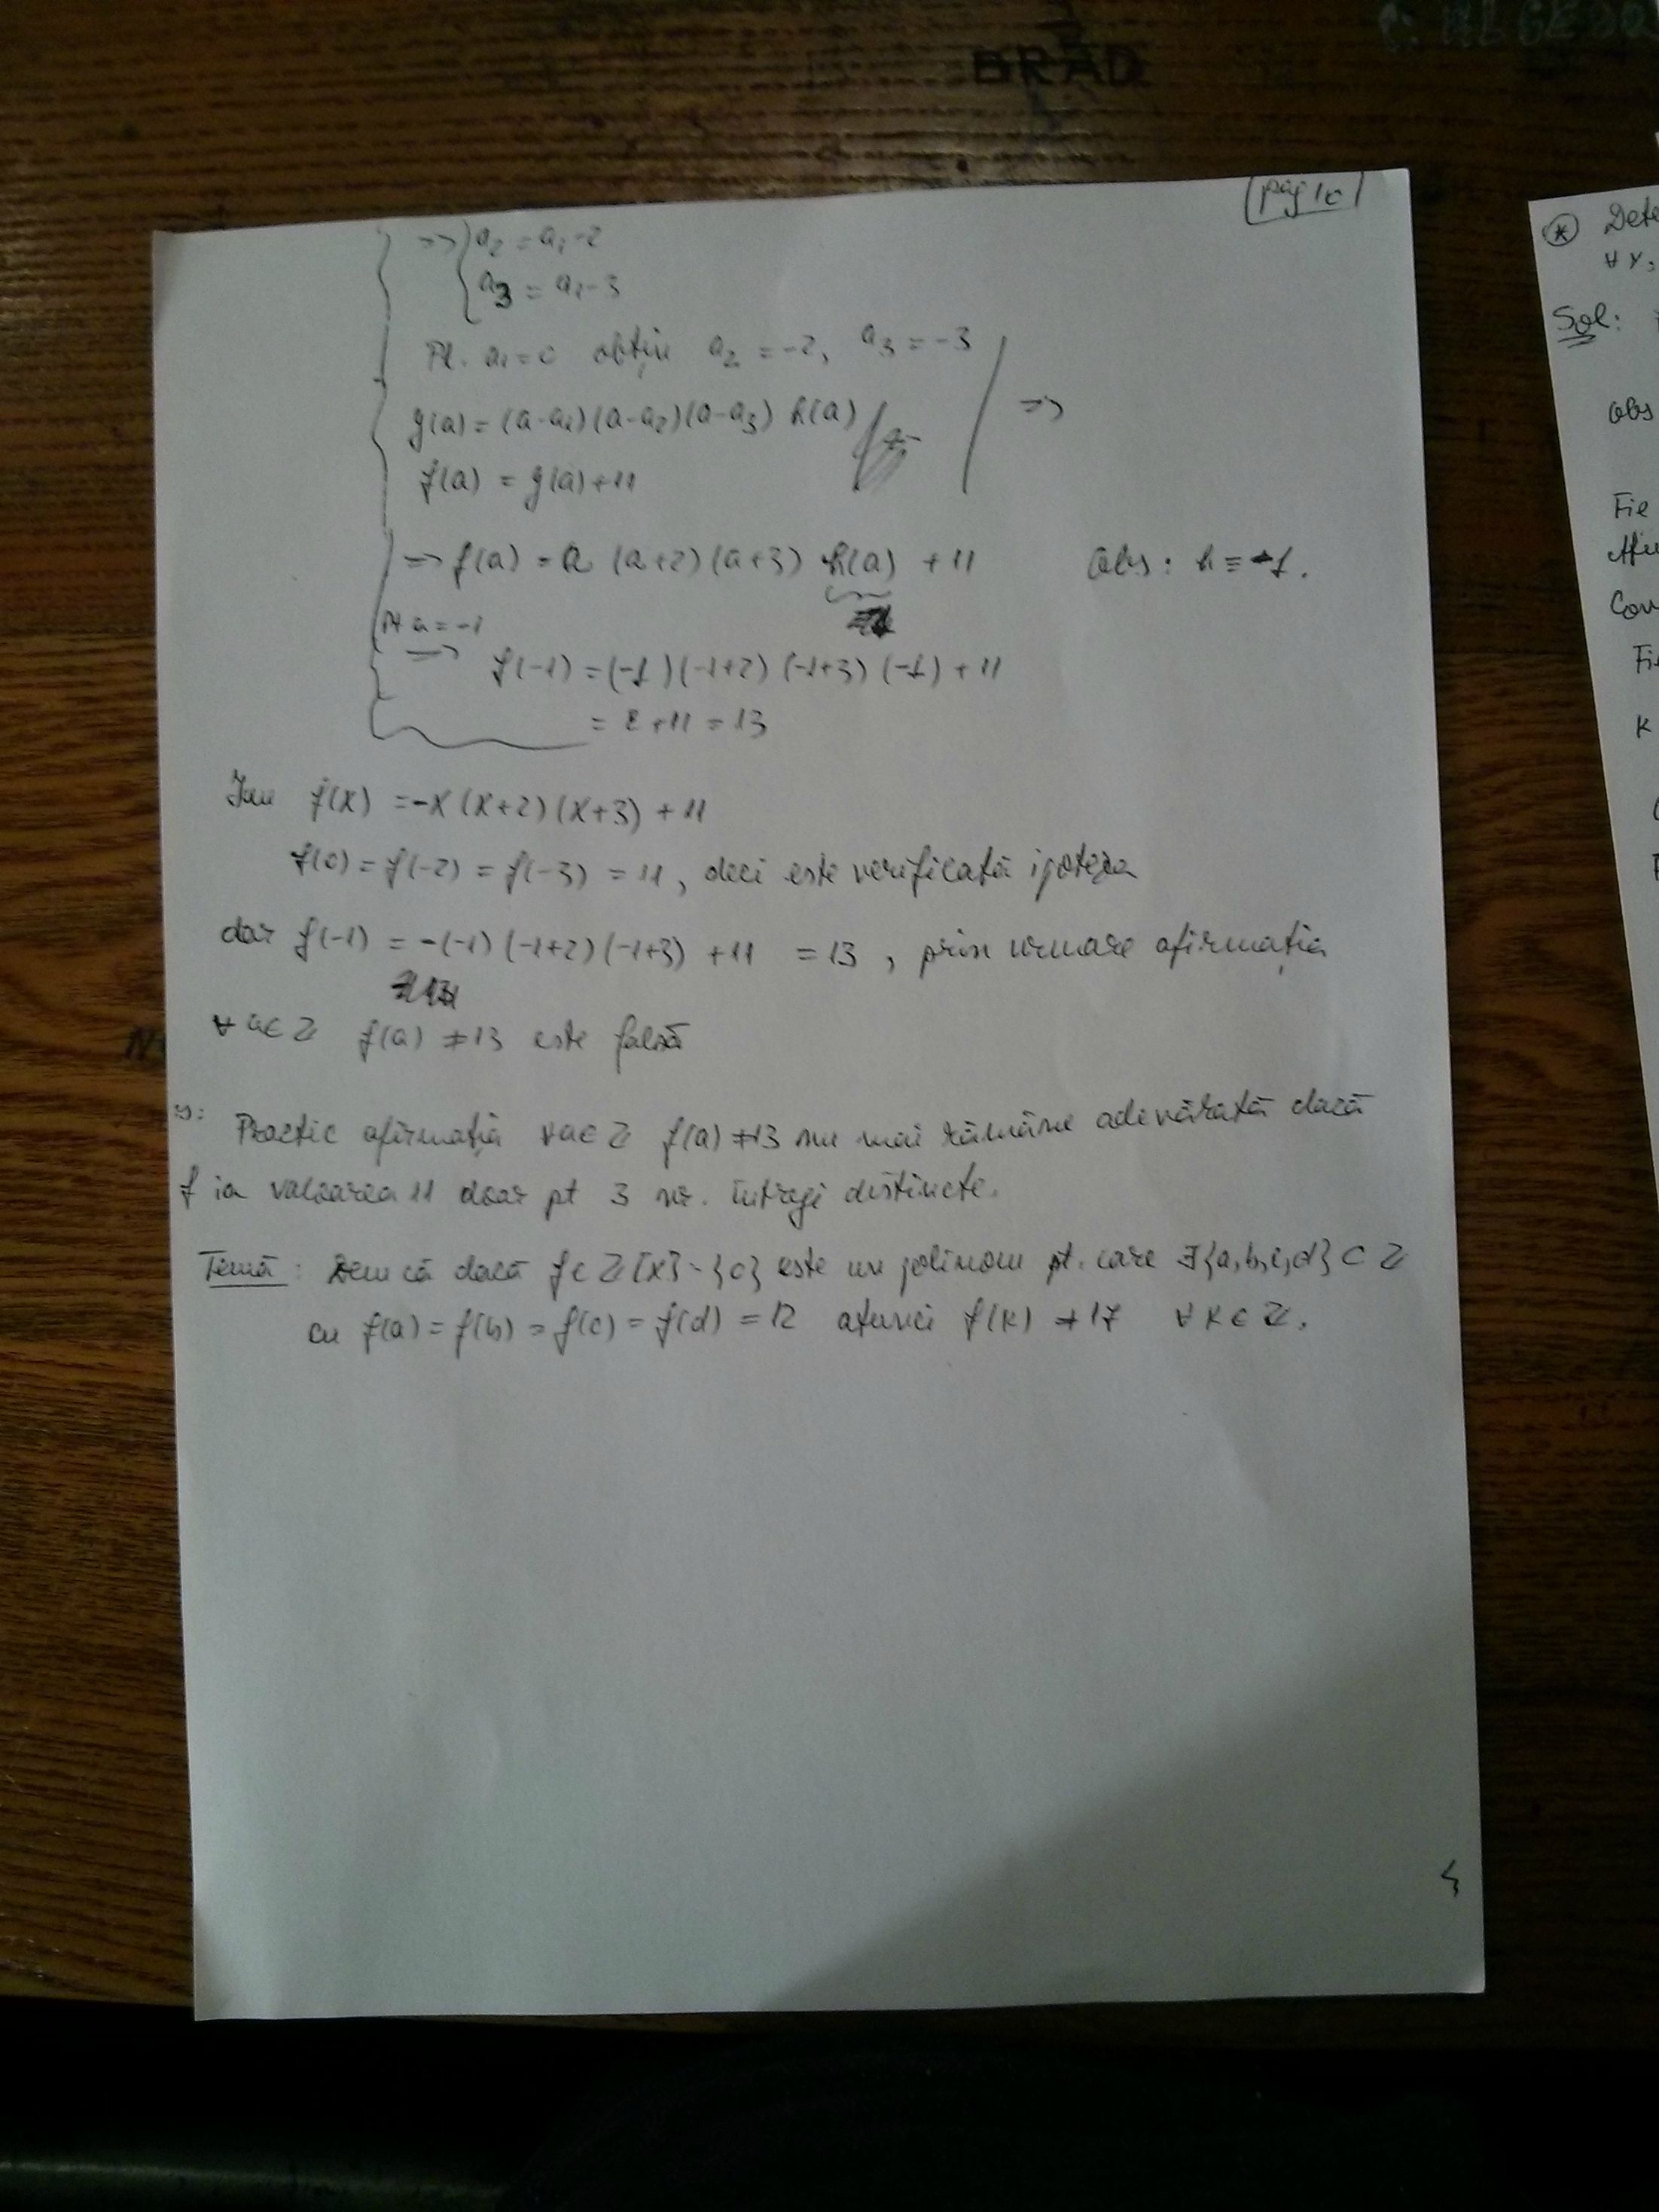 BRAD
pag 10
=> { a₂ = a₁-2
a₃ = a₁-3
Pt. a₁=0 obțin a₂ = -2, a₃ = -3
g(a) = (a-a₁)(a-a₂)(a-a₃) h(a)
=>
f(a) = g(a)+11
=> f(a) = a (a+2)(a+3) h(a) + 11 Obs: h ≡ -1.
Pt a=-1
=> f(-1) = (-1)(-1+2)(-1+3)(-1) + 11
= 2+11 = 13
Iau f(x) = -x(x+2)(x+3) + 11
f(0) = f(-2) = f(-3) = 11, deci este verificată ipoteza
dar f(-1) = -(-1)(-1+2)(-1+3) + 11 = 13, prin urmare afirmația
∀ a∈ℤ f(a) ≠ 13 este falsă
Practic afirmația ∀a∈ℤ f(a) ≠ 13 nu mai rămâne adevărată dacă
f ia valoarea 11 doar pt 3 nr. întregi distincte.
Temă: Dem că dacă f∈ℤ[x]-{0} este un polinom pt. care ∃{a,b,c,d}⊂ℤ
cu f(a) = f(b) = f(c) = f(d) = 12 atunci f(k) ≠ 17 ∀ k∈ℤ.
⊛ Dete
∀ x,
Sol:
Obs
Fie
Con
Fie
K